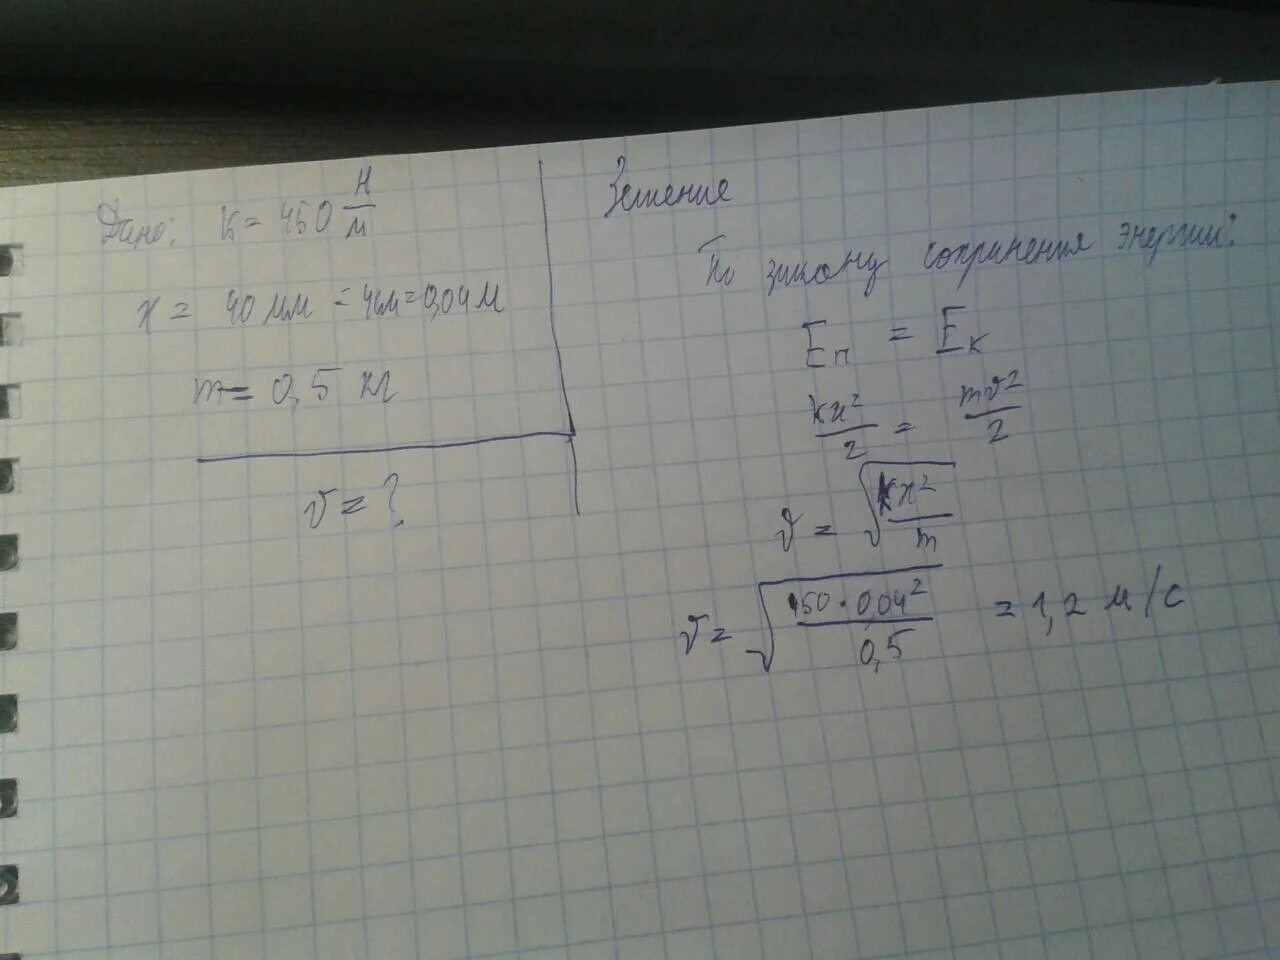 Дано: k = 450 Н/м
x = 40 мм = 4см = 0,04 м
m = 0,5 кг
v = ?
Решение
По закону сохранения энергии:
Eп = Eк
kx²/2 = mv²/2
v = √(kx²/m)
v = √(450 · 0,04²/0,5) = 1,2 м/с